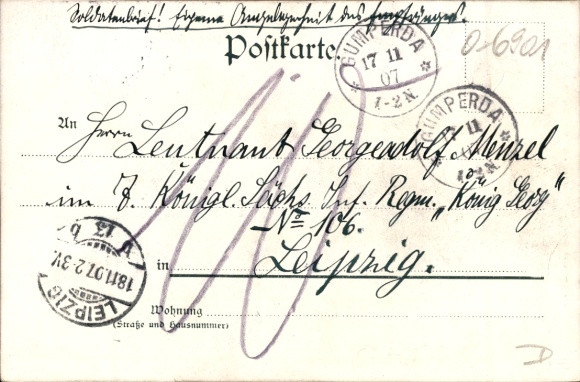 Soldatenbrief! Eigene Angelegenheit des Empfängers.
Postkarte.
0-6901
GUMPERDA
17 11
07
1-2 N.
GUMPERDA
17 11
1-2 N.
An Herrn
Leutnant Georg Menzel
im 7. Königl. Sächs. Inf. Regm. „König Georg"
No 106.
in Leipzig.
LEIPZIG
18.11.07. 2-3V.
13
b
Wohnung
(Straße und Hausnummer)
10
D